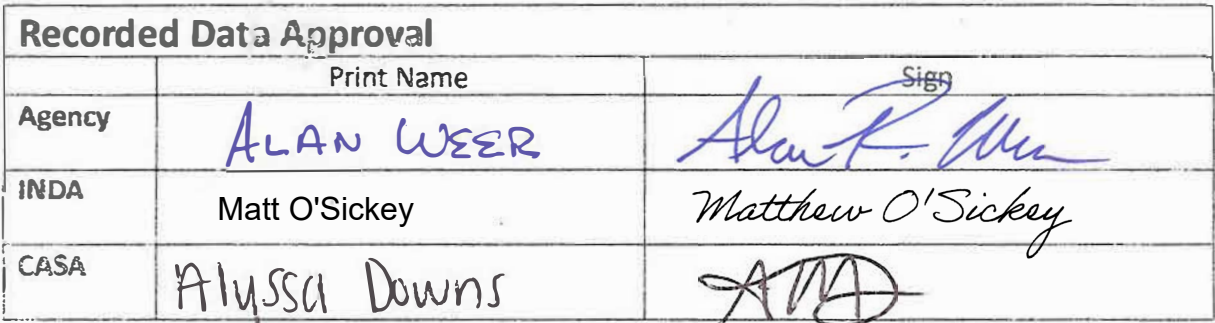 Recorded Data Approval
Print Name Sign
Agency ALAN WEER Alan R. Weer
INDA Matt O'Sickey Matthew O'Sickey
CASA Alyssa Downs